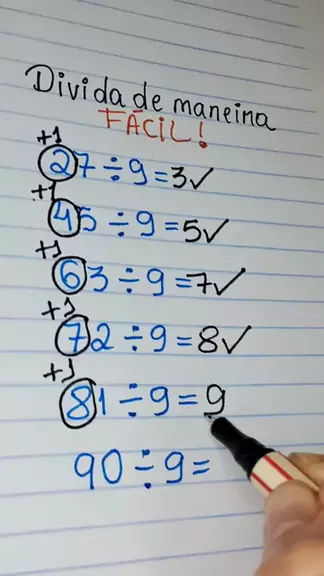 Divida de maneira
FÁCIL!
+1
27÷9=3✓
+1
45÷9=5✓
+1
63÷9=7✓
+1
72÷9=8✓
+1
81÷9=9
90÷9=